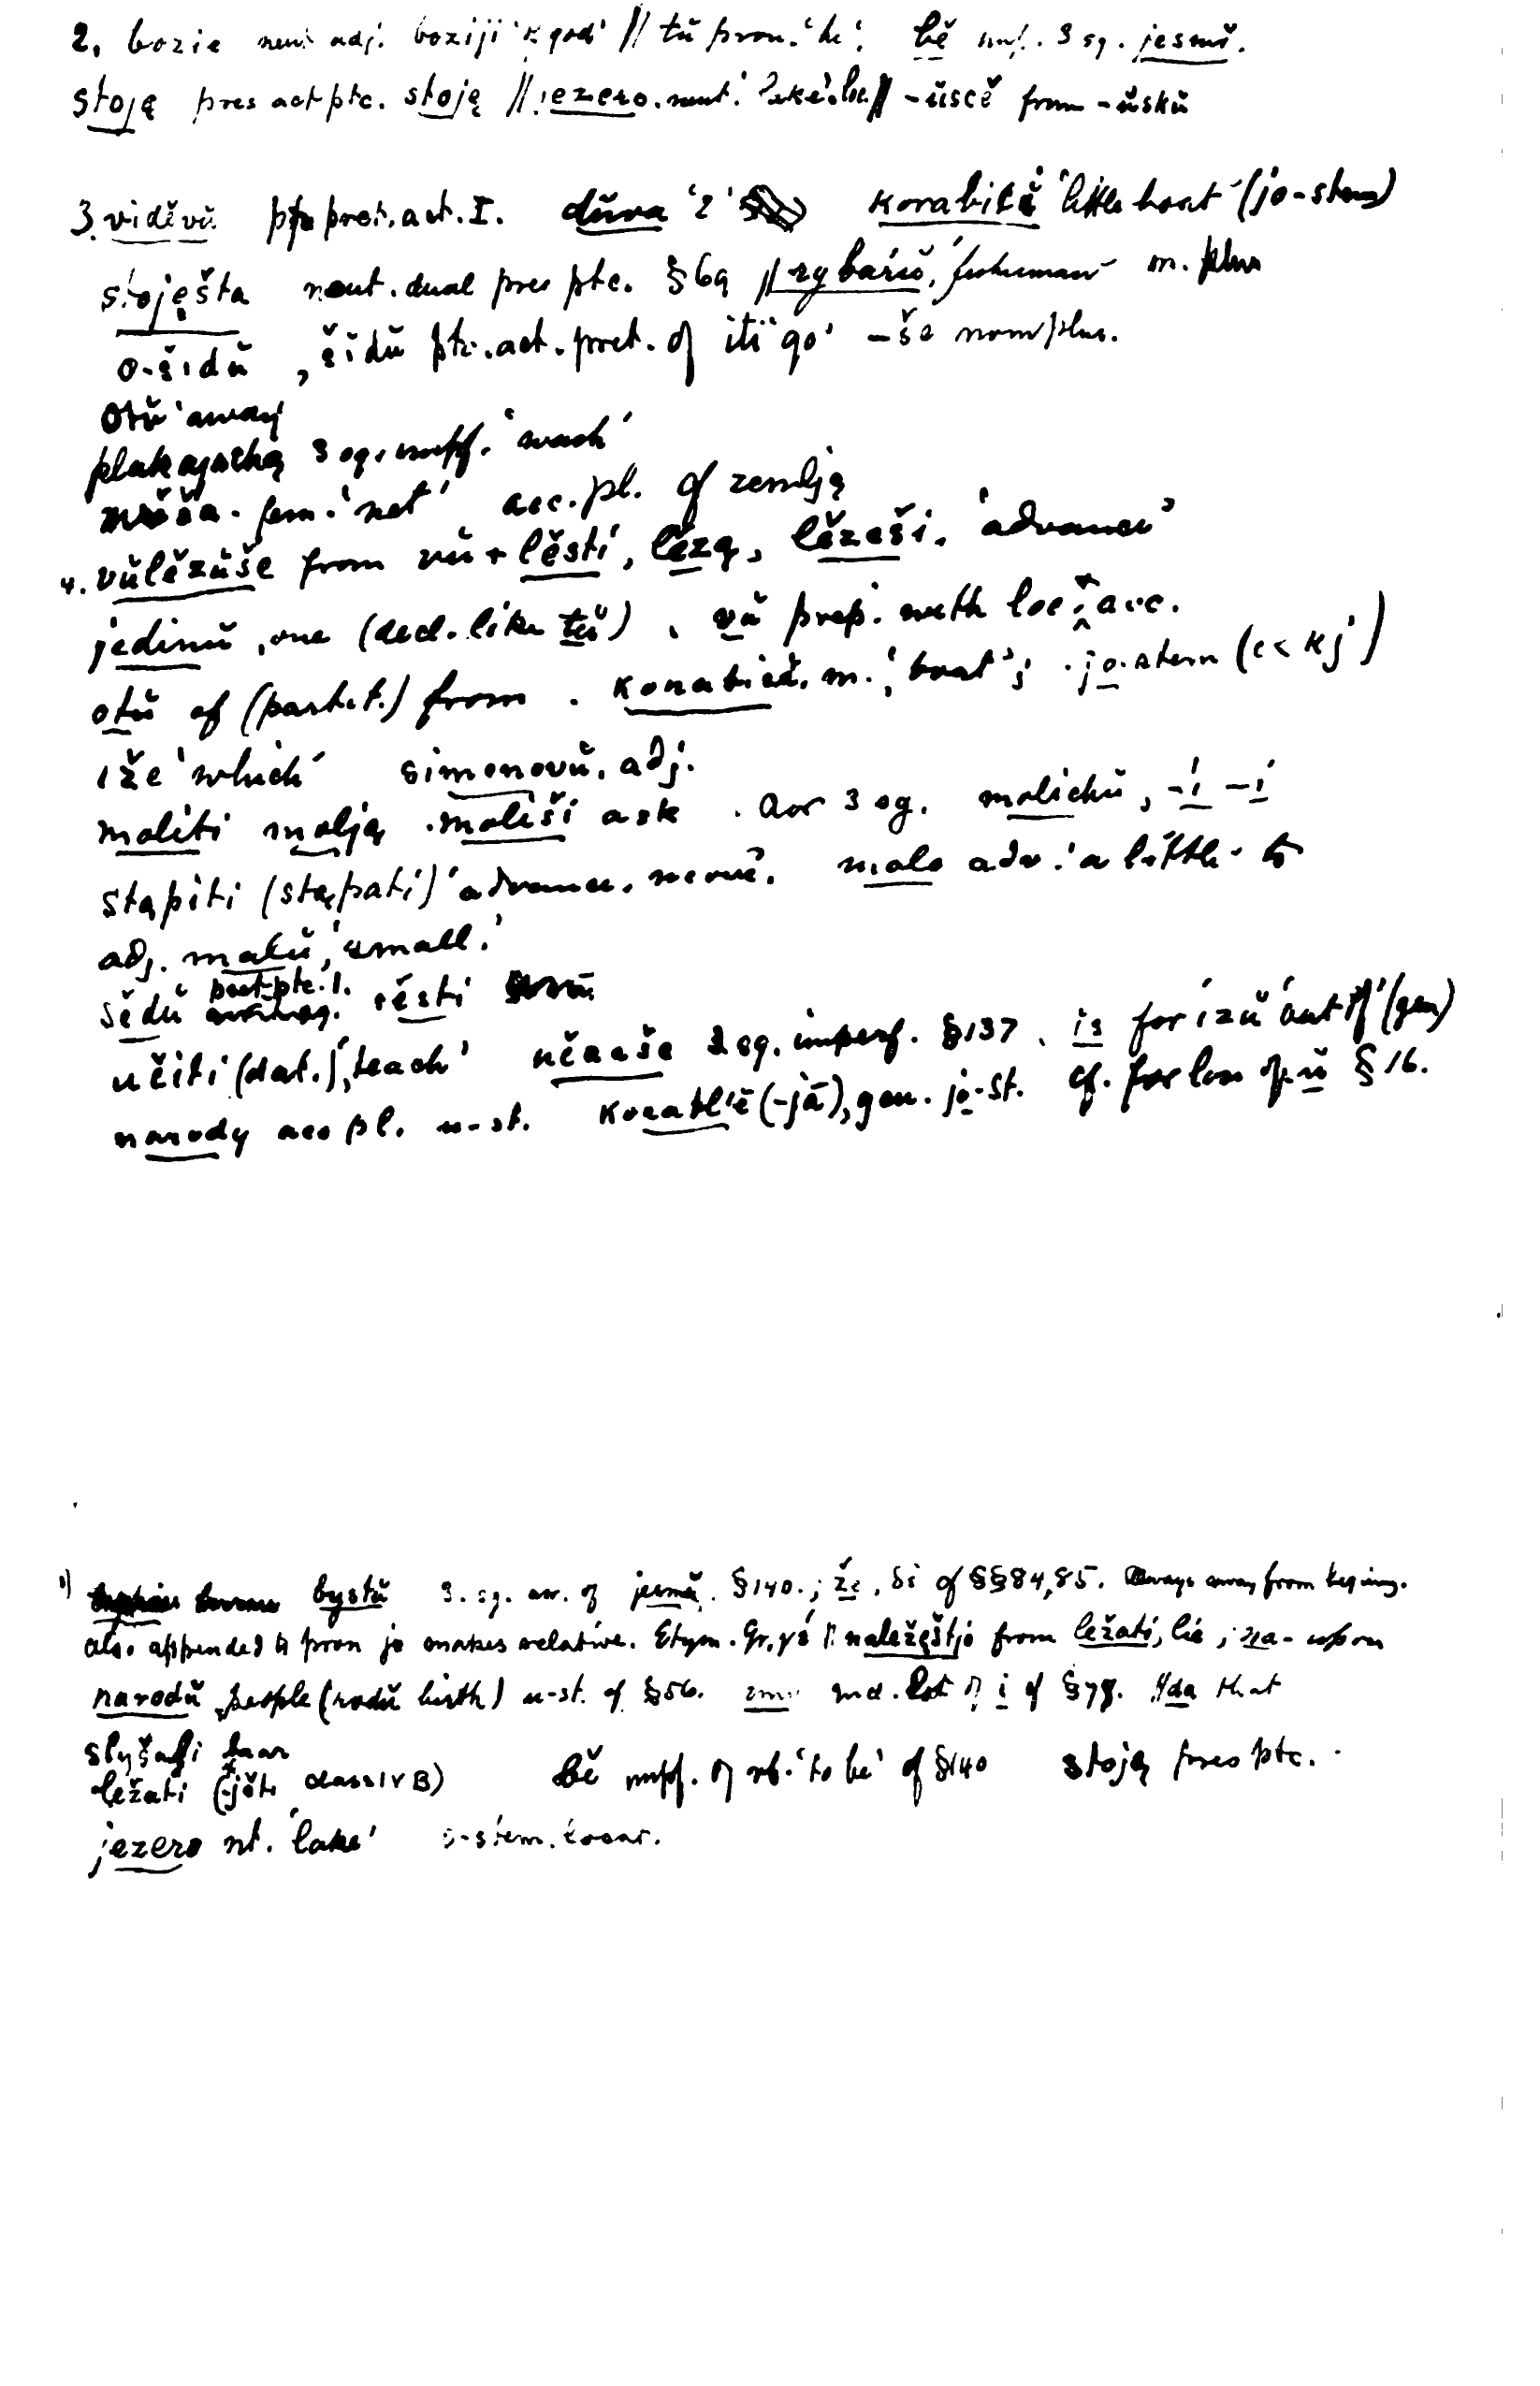 2. bozie neut adj. boziji 'of god' // tŭ pron. 'he'. bě impf. 3 sg. jesmĭ.
stoję pres act ptc. stoję // jezero. neut. 'lake'. loc // -ŭscě from -ŭskŭ
3. viděvŭ ptc pret. act. I. dŭva '2' korabicĭ 'little boat' (jo-stem)
stoještа neut. dual pres ptc. §69 // rybar'ĭ, 'fisherman' m. plur
o-šĭdŭ, šĭdŭ ptc. act. pret. of iti 'go' -še nom plur.
otŭ 'away'
plakaјаchǫ 3 sg. impf. 'wash'
mrěža. fem. 'net' acc. pl. of zemlją
4. vŭlězŭše from vŭ + lěsti, lězą, lězeši. 'advance'
jedinŭ, one (decl. like tŭ). vŭ prep. with loc + acc.
otŭ of (partit.) from. korabicĭ. m. 'boat'; jo-stem (c < kj)
iže 'which' simonovŭ. adj.
moliti molją moliši ask. Aor 3 sg. molichŭ, -i -i
stąpiti (stąpati) 'advance, move'. malo adv. 'a little' to
adj. malŭ, 'small.'
sědŭ past ptc. I. sěsti
učiti (dat.), 'teach' učaaše 3 sg. imperf. §137. is for izŭ 'out of' (gen)
narody acc pl. u-st. korabl'ě (-jā), gen. jo-st. cf. for loss of ŭ §16.
1) bystŭ 3. sg. aor. of jesmĭ. §140.; že, di cf §§84,85. Always away from begining.
also appended to pron jo makes relative. Etym. Gr. γέ // naležęštjo from ležati, lie; na- upon
narodŭ, people (rodŭ birth) u-st. cf §56. imu md. dat of i cf §78. // da that
slyšati hear
ležati (*-jěti class IV B) bě impf. of vb. 'to be' cf §140 stoję pres ptc.
jezero nt. 'lake' o-stem. locat.